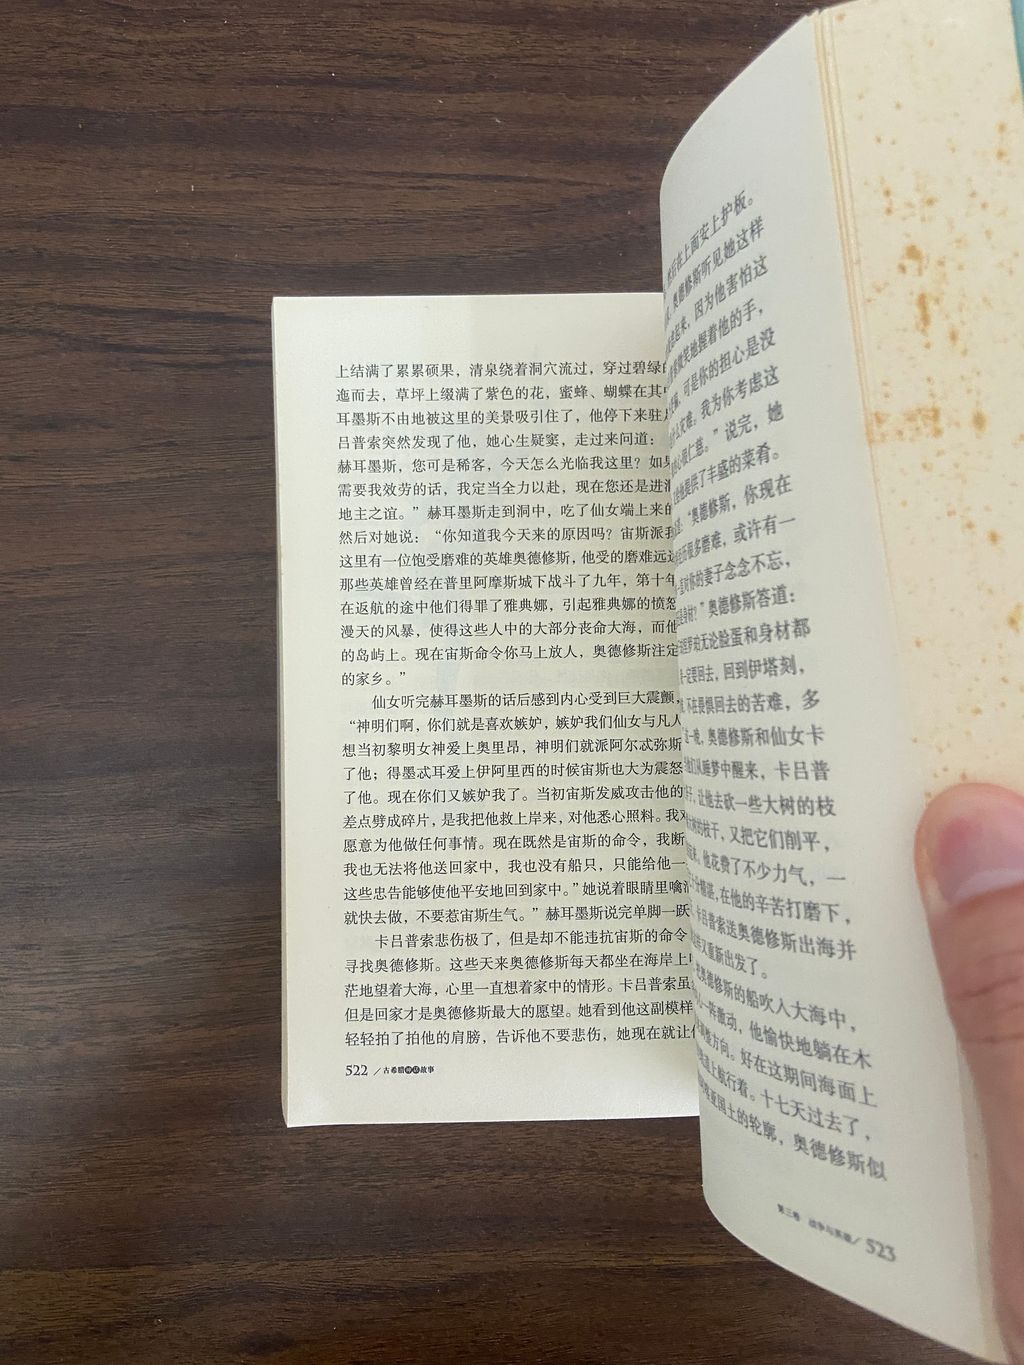 上结满了累累硕果，清泉绕着洞穴流过，穿过碧绿
迤而去，草坪上缀满了紫色的花，蜜蜂、蝴蝶在其
耳墨斯不由地被这里的美景吸引住了，他停下来驻
吕普索突然发现了他，她心生疑窦，走过来问道：
赫耳墨斯，您可是稀客，今天怎么光临我这里？如
需要我效劳的话，我定当全力以赴，现在您还是进
地主之谊。”赫耳墨斯走到洞中，吃了仙女端上来的
然后对她说：“你知道我今天来的原因吗？宙斯派
这里有一位饱受磨难的英雄奥德修斯，他受的磨难远
那些英雄曾经在普里阿摩斯城下战斗了九年，第十年
在返航的途中他们得罪了雅典娜，引起雅典娜的愤怒
漫天的风暴，使得这些人中的大部分丧命大海，而他
的岛屿上。现在宙斯命令你马上放人，奥德修斯注定
的家乡。”
仙女听完赫耳墨斯的话后感到内心受到巨大震颤，
“神明们啊，你们就是喜欢嫉妒，嫉妒我们仙女与凡人
想当初黎明女神爱上奥里昂，神明们就派阿尔忒弥斯
了他；得墨忒耳爱上伊阿里西的时候宙斯也大为震怒
了他。现在你们又嫉妒我了。当初宙斯发威攻击他的
差点劈成碎片，是我把他救上岸来，对他悉心照料。我
愿意为他做任何事情。现在既然是宙斯的命令，我断
我也无法将他送回家中，我也没有船只，只能给他一
这些忠告能够使他平安地回到家中。”她说着眼睛里噙
就快去做，不要惹宙斯生气。”赫耳墨斯说完单脚一跃
卡吕普索悲伤极了，但是却不能违抗宙斯的命令
寻找奥德修斯。这些天来奥德修斯每天都坐在海岸上
茫地望着大海，心里一直想着家中的情形。卡吕普索虽
但是回家才是奥德修斯最大的愿望。她看到他这副模样
轻轻拍了拍他的肩膀，告诉他不要悲伤，她现在就让
522 / 古希腊神话故事
在上面安上护板。
奥德修斯听见她这样
起来，因为他害怕这
微笑地握着他的手，
可是你的担心是没
什么灾难。我为你考虑这
心很仁慈。”说完，她
他提供了丰盛的菜肴。
“奥德修斯，你现在
很多磨难，或许有一
对你的妻子念念不忘，
身材？”奥德修斯答道：
罗珀无论脸蛋和身材都
一定要回去，回到伊塔刻，
不在畏惧回去的苦难，多
这一晚，奥德修斯和仙女卡
他们从睡梦中醒来，卡吕普
子，让他去砍一些大树的枝
的枝干，又把它们削平，
来。他花费了不少力气，一
分精湛，在他的辛苦打磨下，
卡吕普索送奥德修斯出海并
又重新出发了。
奥德修斯的船吹入大海中，
一阵激动，他愉快地躺在木
方向。好在这期间海面上
道上航行着。十七天过去了，
亚国土的轮廓，奥德修斯似
第三卷 战争与英雄 / 523